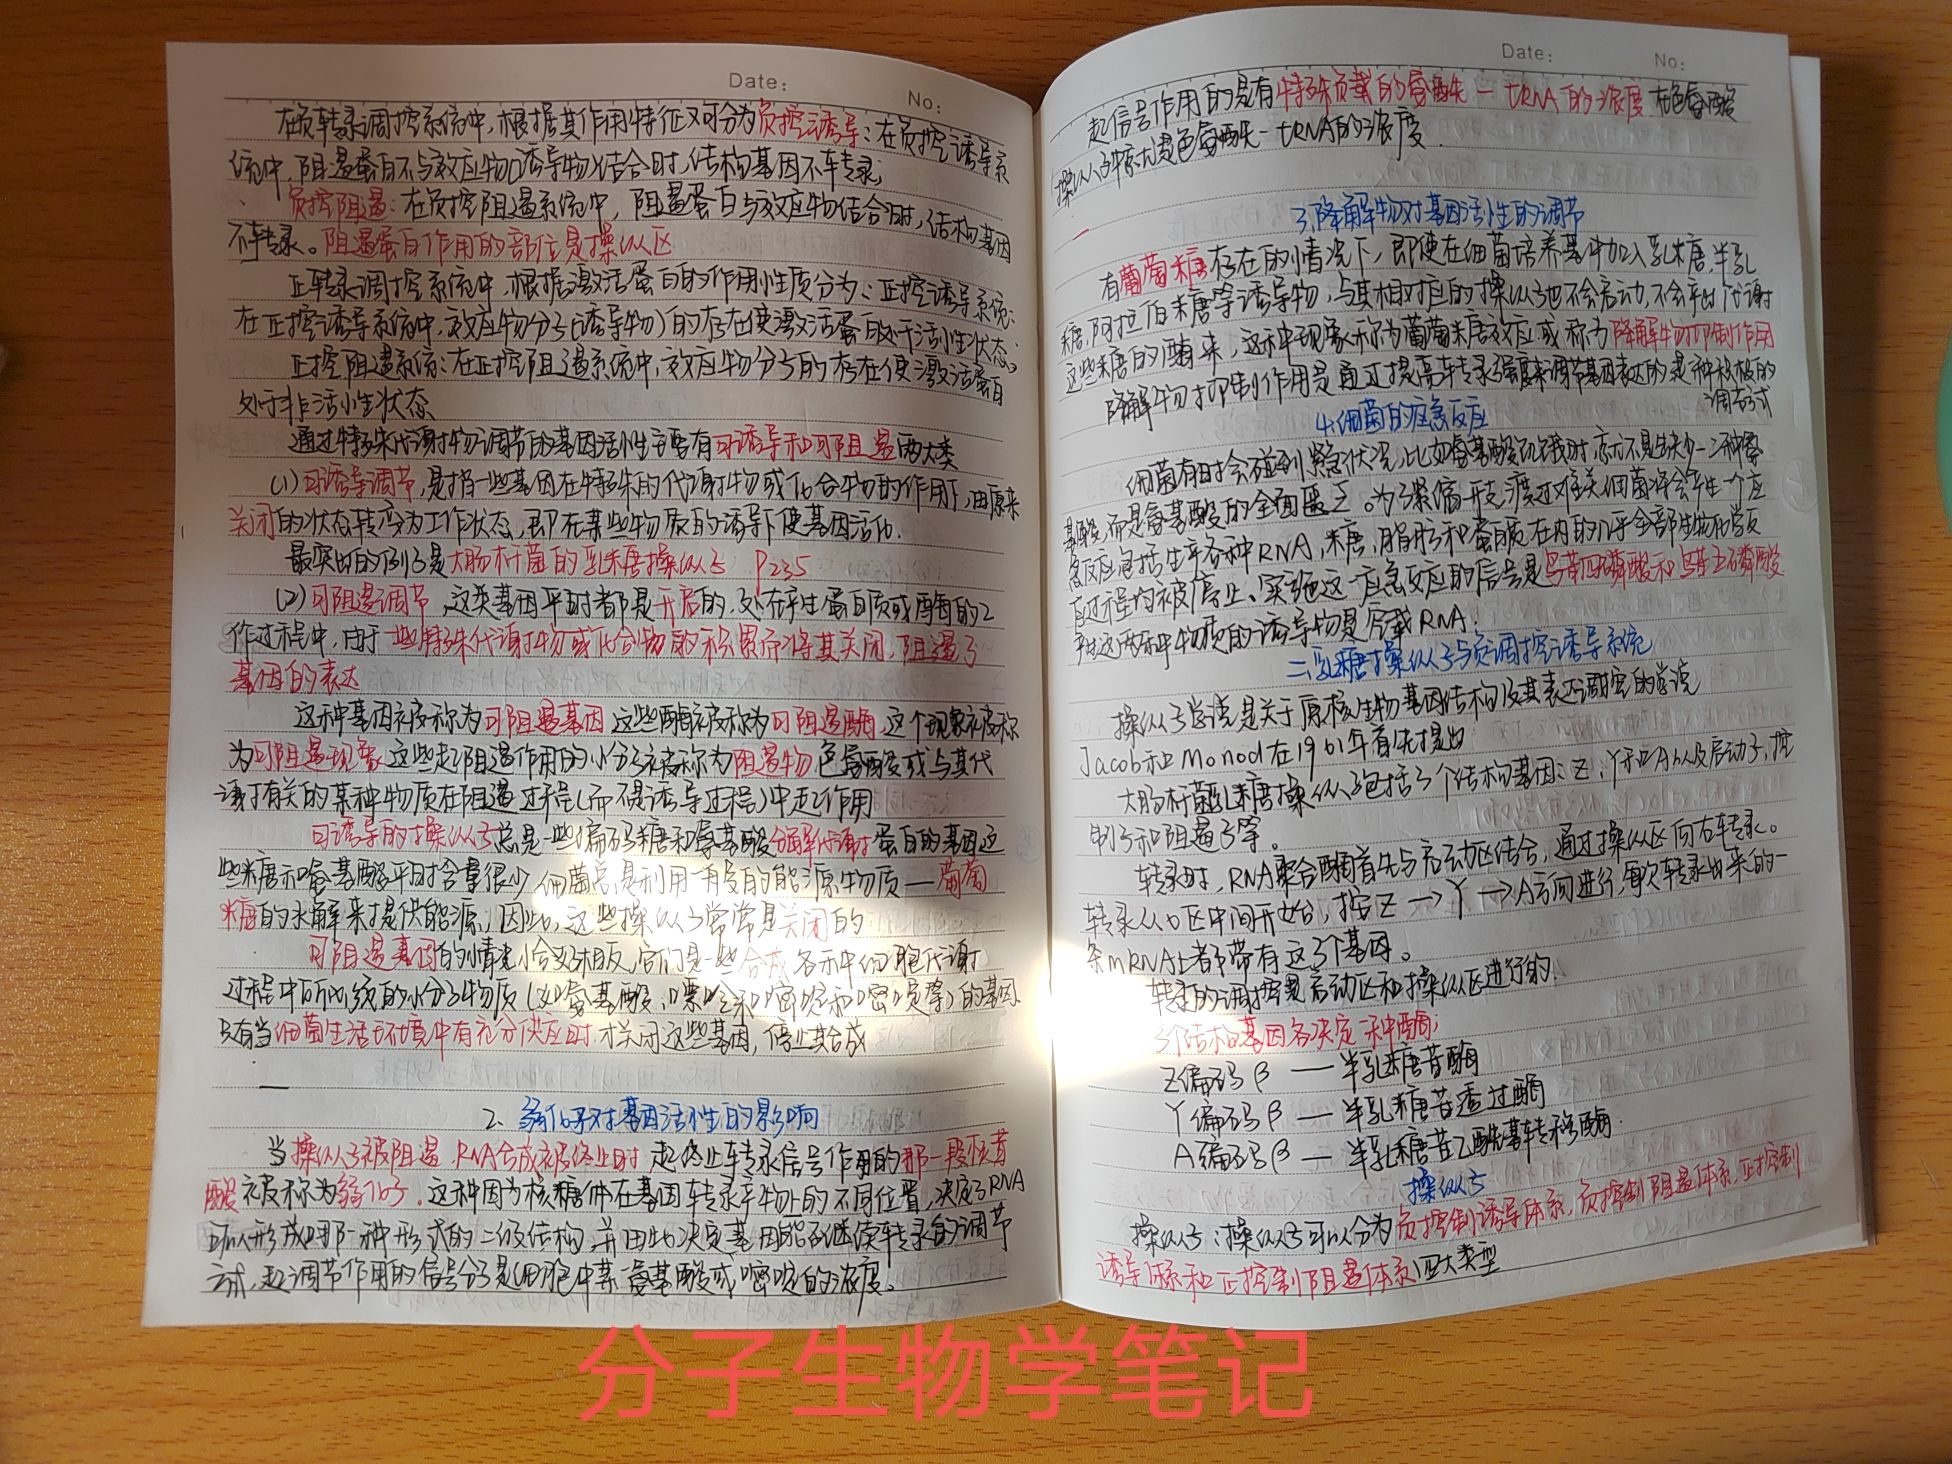 Date:
No:
在负转录调控系统中,根据其作用特征又可分为负控诱导:在负控诱导系
统中,阻遏蛋白不与效应物(诱导物)结合时,结构基因不转录;
负控阻遏:在负控阻遏系统中,阻遏蛋白与效应物结合时,结构基因
不转录。阻遏蛋白作用的部位是操纵区
正转录调控系统中,根据激活蛋白的作用性质分为:正控诱导系统:
在正控诱导系统中,效应物分子(诱导物)的存在使激活蛋白处于活性状态;
正控阻遏系统:在正控阻遏系统中,效应物分子的存在使激活蛋白
处于非活性状态
通过特殊代谢物调节的基因活性主要有可诱导和可阻遏两大类
(1)可诱导调节,是指一些基因在特殊的代谢物或化合物的作用下,由原来
关闭的状态转变为工作状态,即在某些物质的诱导下使基因活化.
最突出的例子是大肠杆菌的乳糖操纵子 P235
(2)可阻遏调节,这类基因平时都是开启的,处在产生蛋白质或酶的工
作过程中,由于一些特殊代谢物或化合物的积累而将其关闭,阻遏了
基因的表达
这种基因被称为可阻遏基因 这些酶被称为可阻遏酶,这个现象被称
为可阻遏现象 这些起阻遏作用的小分子被称为阻遏物 色氨酸或与其代
谢有关的某种物质在阻遏过程(而不是诱导过程)中起作用
可诱导的操纵子总是一些编码糖和氨基酸分解代谢蛋白的基因这
些糖和氨基酸平时含量很少 细菌总是利用一般的能源物质——葡萄
糖的水解来提供能源,因此,这些操纵子常常是关闭的
可阻遏基因的情况恰好相反,它们是一些合成各种细胞代谢
过程中所必须的小分子物质(如氨基酸,嘌呤和嘧啶和嘧啶等)的基因
只有当细菌生活环境中有充分供应时,才关闭这些基因,停止其合成
2. 弱化子对基因活性的影响
当操纵子被阻遏 RNA合成被终止时 起终止转录信号作用的那一段核苷
酸被称为弱化子.这种因为核糖体在基因转录产物上的不同位置,决定了RNA
可以形成哪一种形式的二级结构,并由此决定基因能否继续转录的调节
方式,起调节作用的信号分子是细胞中某一氨基酸或嘧啶的浓度。
Date:
No:
起信号作用的是有特殊负载的氨酰—tRNA的浓度 在色氨酸
操纵子中就是色氨酰—tRNA的浓度.
3.降解物对基因活性的调节
有葡萄糖存在的情况下,即使在细菌培养基中加入乳糖,半乳
糖,阿拉伯糖等诱导物,与其相对应的操纵子也不会启动,不会产出代谢
这些糖的酶来,这种现象称为葡萄糖效应或称为降解物抑制作用
降解物抑制作用是通过提高转录强度来调节基因表达的是种积极的
调节方式
4.细菌的应急反应
细菌有时会碰到紧急状况,比如氨基酸饥饿时,亦不是缺少一二种氨
基酸,而是氨基酸的全面匮乏。为了紧缩开支,渡过难关细菌将会产生一个应
急反应包括生产各种RNA,糖,脂肪和蛋白质在内的几乎全部生物化学反
应过程均被停止、实施这一应急反应的信号是鸟苷四磷酸和鸟苷五磷酸
产生这两种物质的诱导物是空载RNA.
二.乳糖操纵子与负调控诱导系统
操纵子学说是关于原核生物基因结构及其表达调控的学说
Jacob和Monod在1961年首先提出
大肠杆菌乳糖操纵子包括3个结构基因:Z,Y和A以及启动子,控
制子和阻遏子等。
转录时,RNA聚合酶首先与启动区结合,通过操纵区向右转录。
转录从O区中间开始,按Z→Y→A方向进行,每次转录出来的一
条mRNA上都带有这3个基因。
转录的调控是启动区和操纵区进行的.
3个结构基因各决定一种酶:
Z编码β——半乳糖苷酶
Y编码β——半乳糖苷透过酶
A编码β——半乳糖苷乙酰基转移酶.
操纵子
操纵子:操纵子可以分为负控制诱导体系,负控制阻遏体系,正控制
诱导体系和正控制阻遏体系四大类型
分子生物学笔记